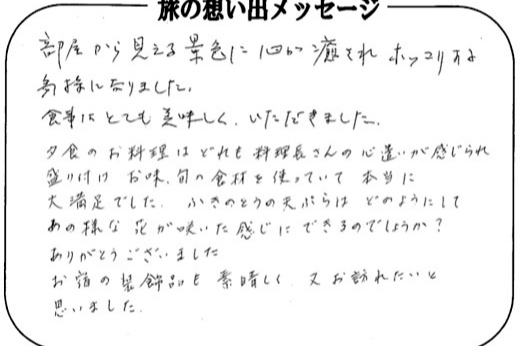 旅の想い出メッセージ
部屋から見える景色に心が癒され ホッコリする
気持になりました。
食事はとても美味しく、いただきました。
夕食のお料理はどれも料理長さんの心遣いが感じられ
盛り付け お味、旬の食材を使っていて 本当に
大満足でした。ふきのとうの天ぷらは どのようにして
あの様な花が咲いた感じにできるのでしょうか?
ありがとうございました
お宿の装飾品も 素晴しく 又お訪れたいと
思いました。